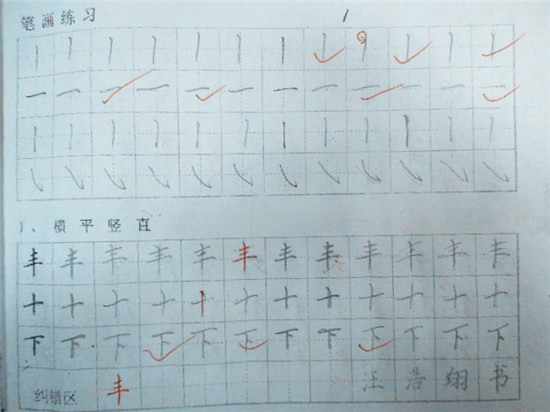 笔画练习 1
丨丨丨丨丨丨丨丨丨丨丨丨
一一一一一一一一一一一一
丨丨丨丨丨丨丨丨丨丨丨丨
1、横平竖直
丰丰丰丰丰丰丰丰丰丰丰丰
十十十十十十十十十十十十
下下下下下下下下下下下下
纠错区 丰 汪浩翔书